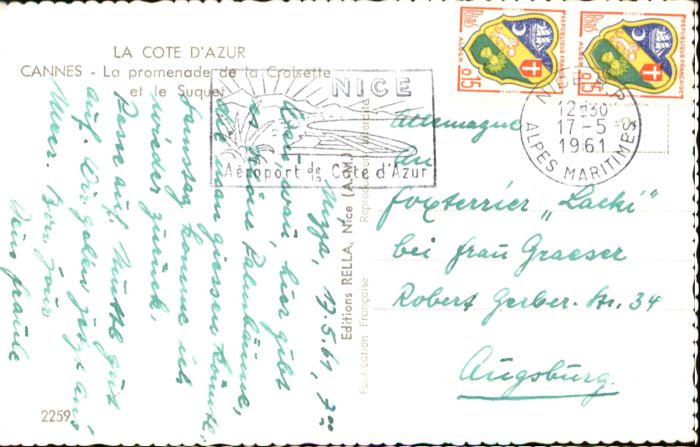 LA COTE D'AZUR
CANNES - La promenade de la Croisette
et le Suquet
NICE
Aéroport de la Côte d'Azur
REPUBLIQUE FRANÇAISE
POSTES
ALGER
0,15
REPUBLIQUE FRANÇAISE
POSTES
ALGER
0,15
12 H30
17-5
1961
ALPES MARITIMES
Nizza, 17.5.61, 7°°
Lieber wau, hier gibt
es keine Palmbäume,
die man giessen könnte,
Samstag komme ich
wieder zurück.
Passe auf Mutti gut
auf. Wir gehen jetzt ans
Meer. Bon jour
Dein Fraule
Editions RELLA, Nice (A.-M.)
Fabrication Française
Reproduction interdite
Allemagne
An
Foxterrier „Lacki"
bei Frau Graeser
Robert Gerber-Str. 34
Augsburg.
2259